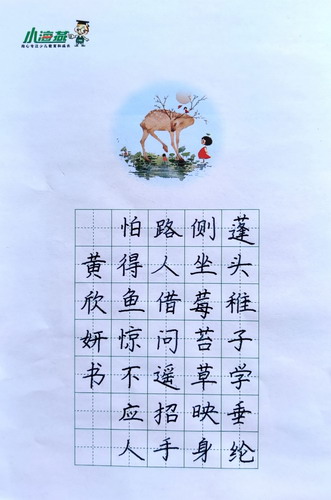 小海燕
用心专注少儿教育和成长
蓬头稚子学垂纶
侧坐莓苔草映身
路人借问遥招手
怕得鱼惊不应人
黄欣妍书